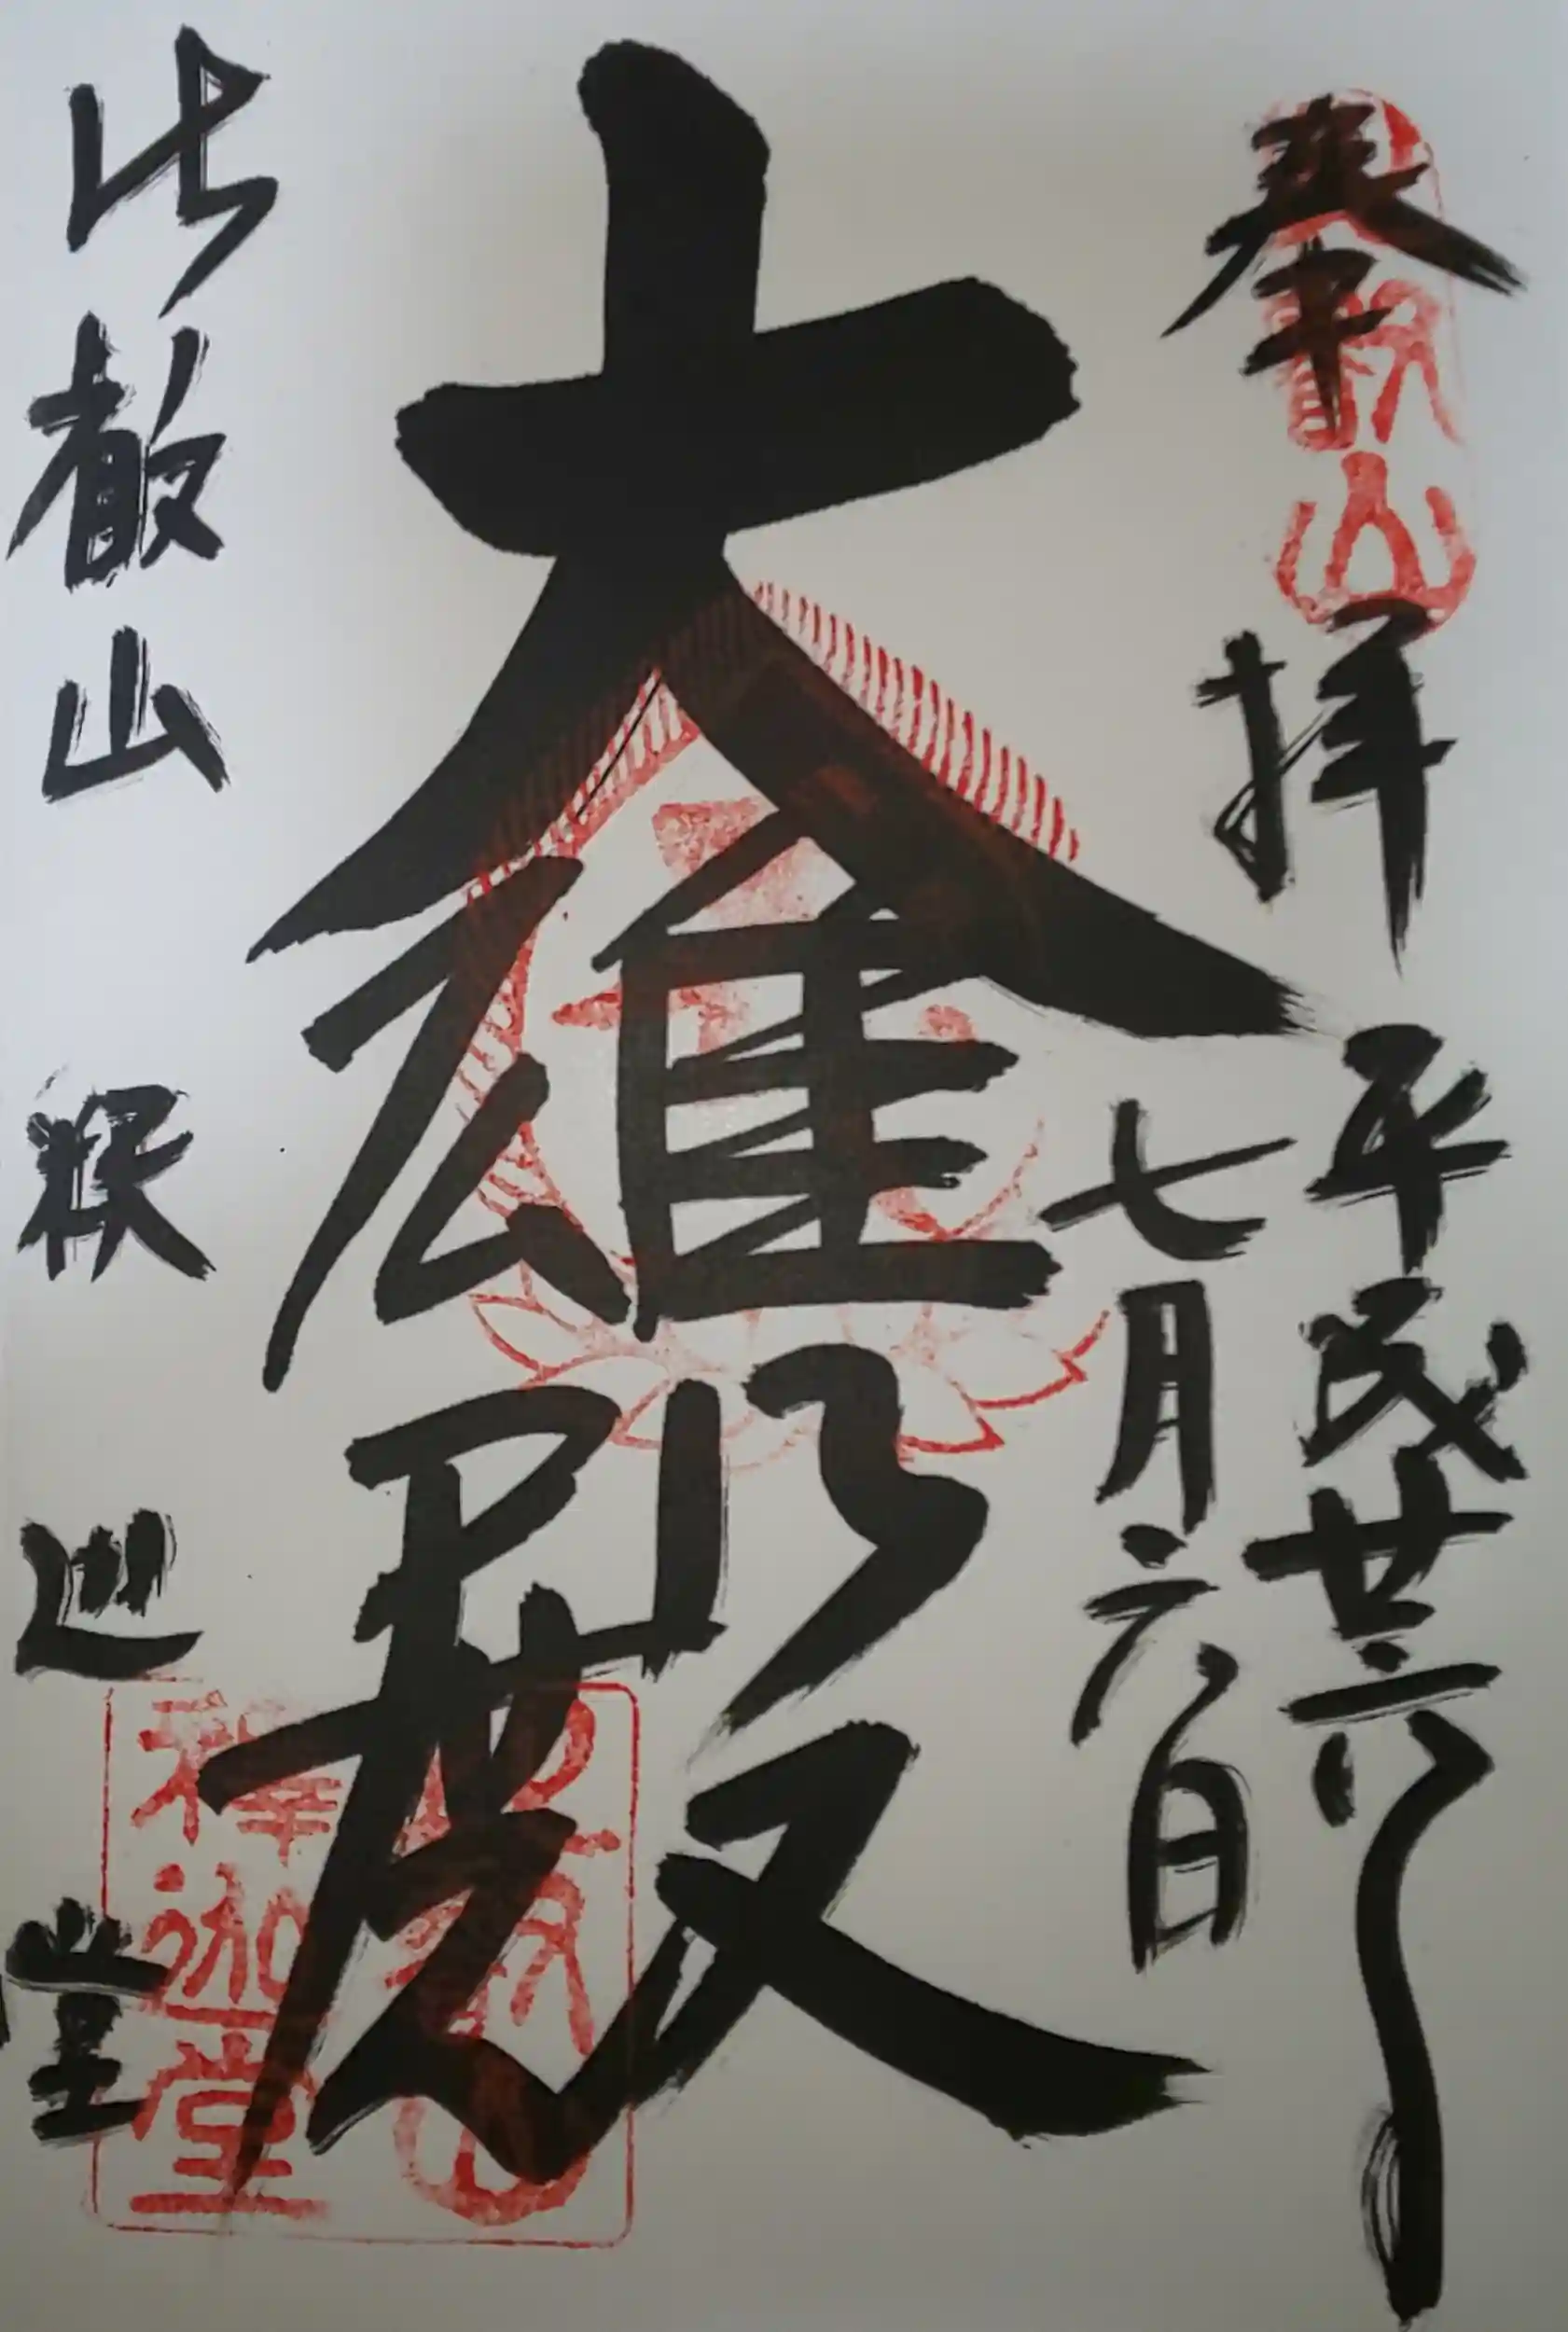 奉拝
平成廿六年
七月六日
大雄殿
比叡山 釈迦堂
比叡山
釈迦堂